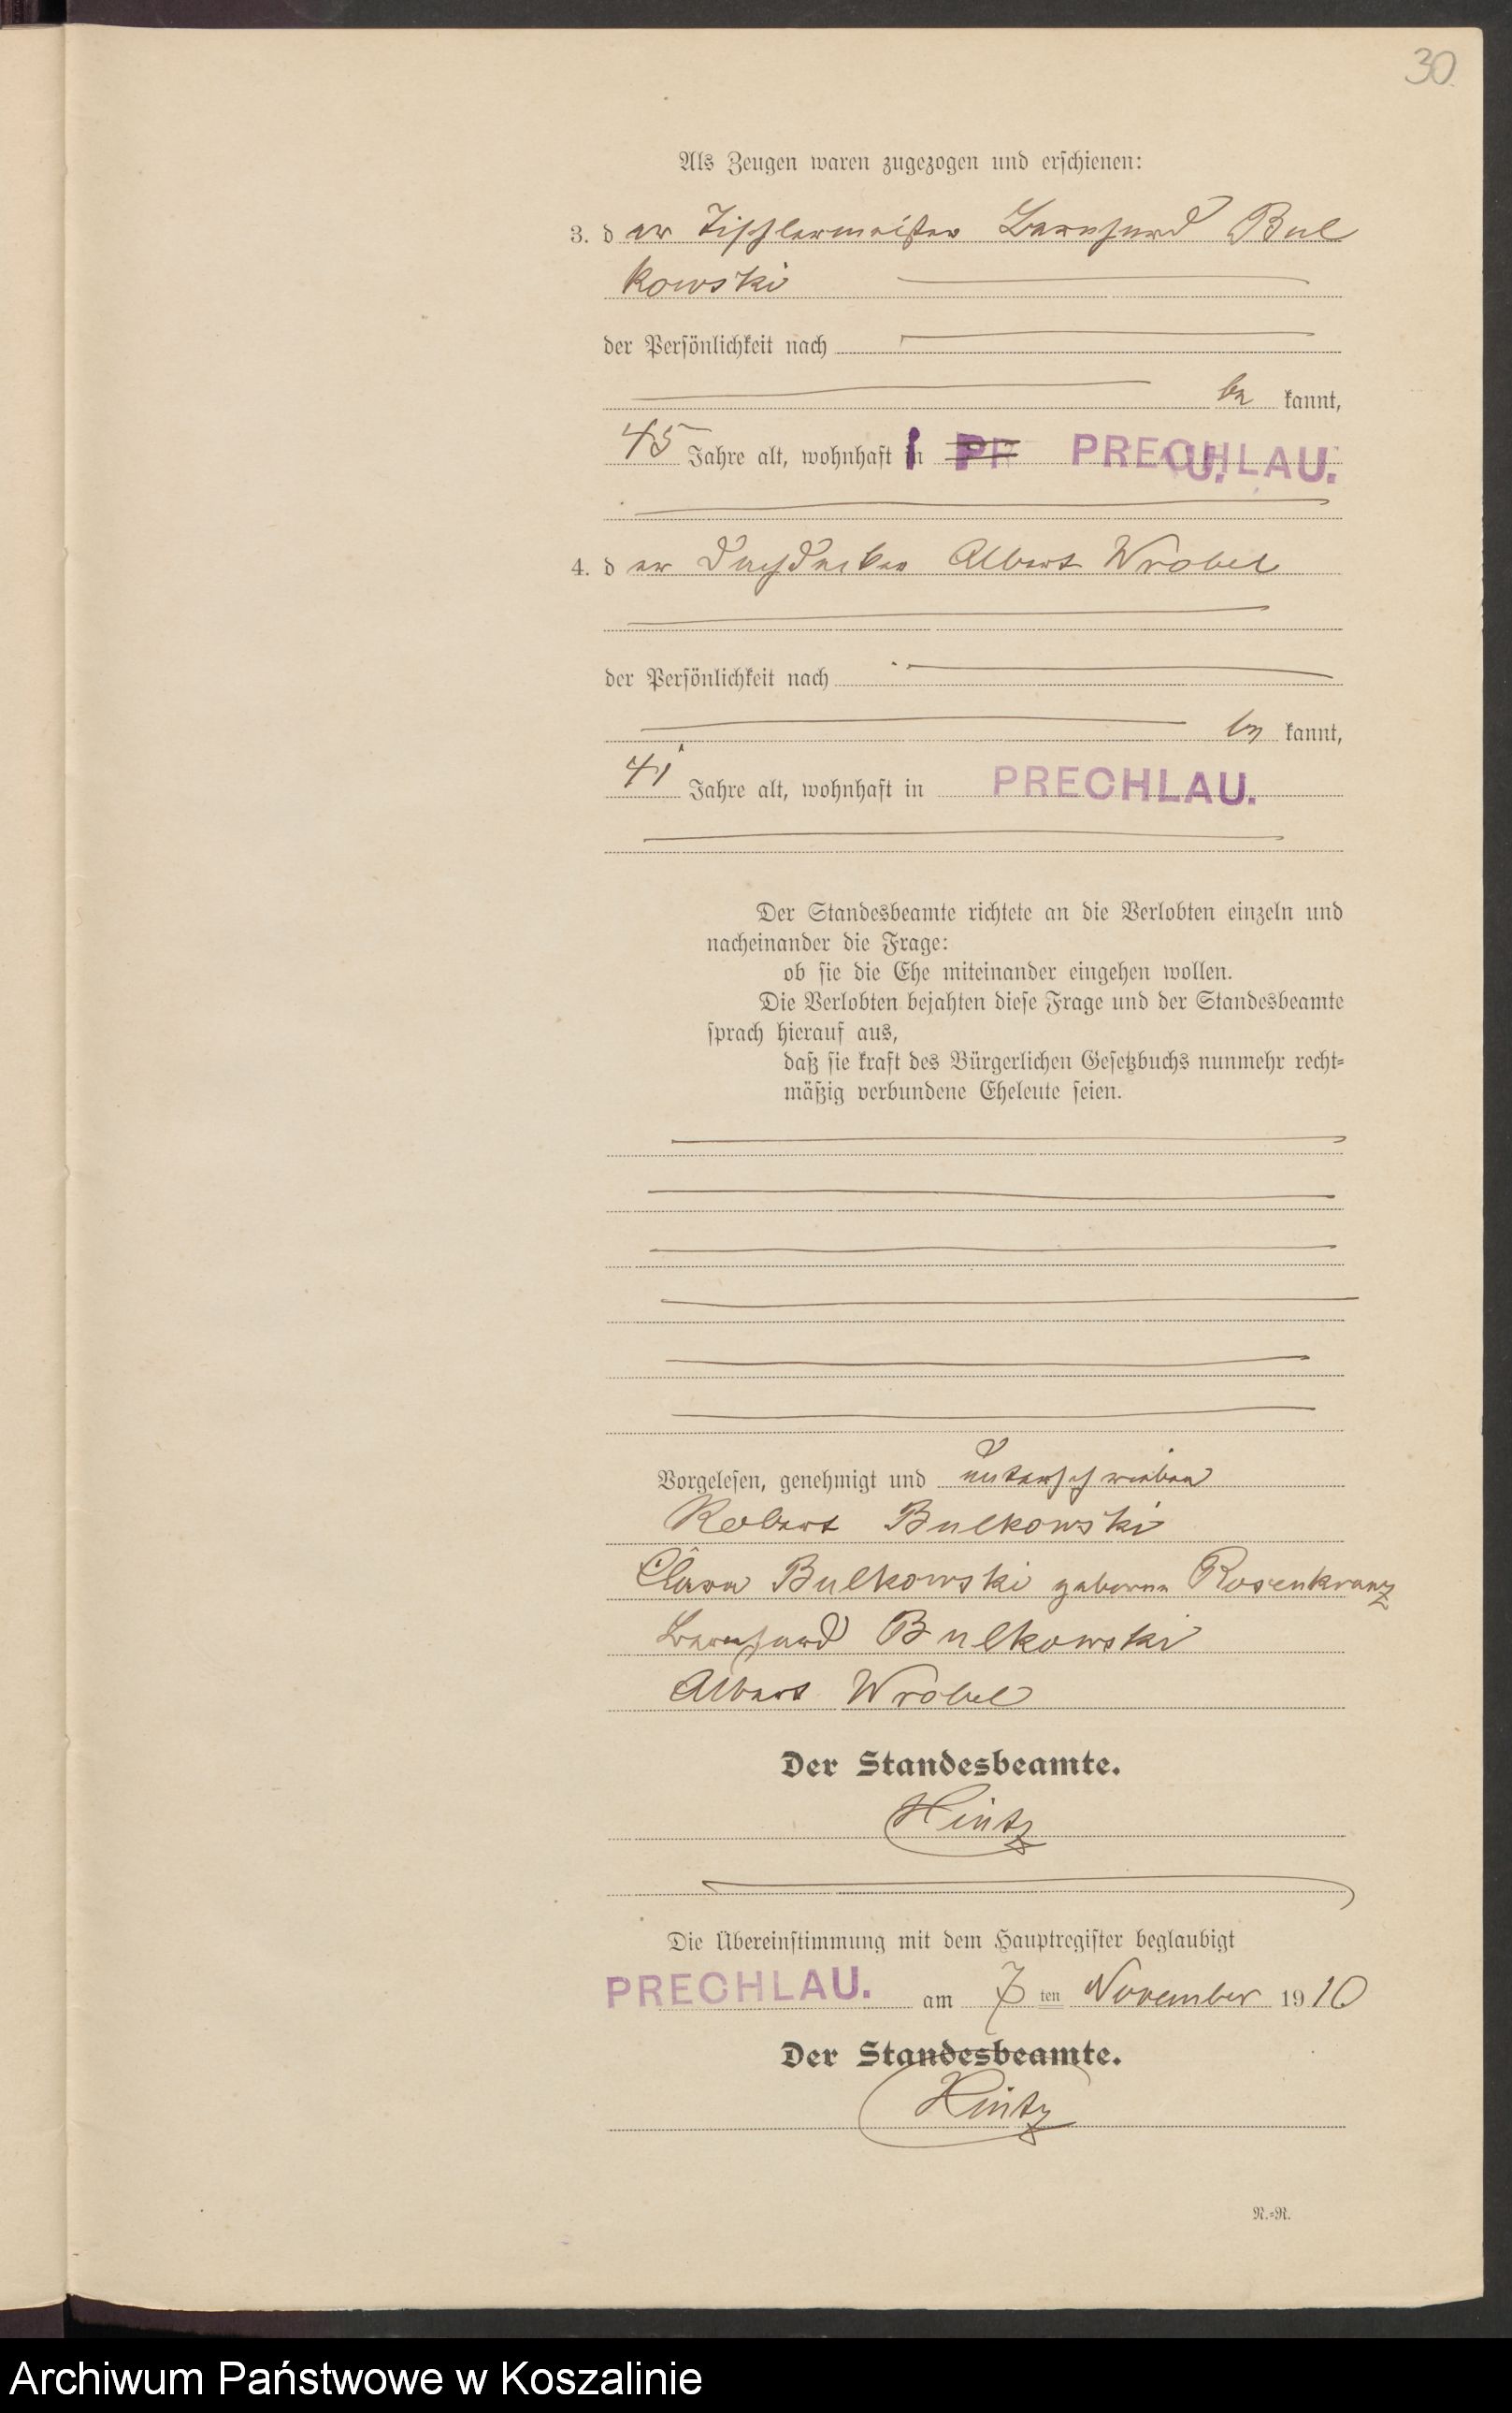 30.
Als Zeugen waren zugezogen und erschienen:
3. der Tischlermeister Bernhard Bul
kowski
der Persönlichkeit nach
be kannt,
45 Jahre alt, wohnhaft in PR PRECHLAU.
4. der Dachdecker Albert Wrobel
der Persönlichkeit nach
be kannt,
41 Jahre alt, wohnhaft in PRECHLAU.
Der Standesbeamte richtete an die Verlobten einzeln und
nacheinander die Frage:
ob sie die Ehe miteinander eingehen wollen.
Die Verlobten bejahten diese Frage und der Standesbeamte
sprach hierauf aus,
daß sie kraft des Bürgerlichen Gesetzbuchs nunmehr recht-
mäßig verbundene Eheleute seien.
Vorgelesen, genehmigt und unterschrieben
Robert Bulkowski
Clara Bulkowski geborene Rosenkranz
Bernhard Bulkowski
Albert Wrobel
Der Standesbeamte.
Hintz
Die Übereinstimmung mit dem Hauptregister beglaubigt
PRECHLAU. am 7 ten November 1910
Der Standesbeamte.
Hintz
N.-R.
Archiwum Państwowe w Koszalinie